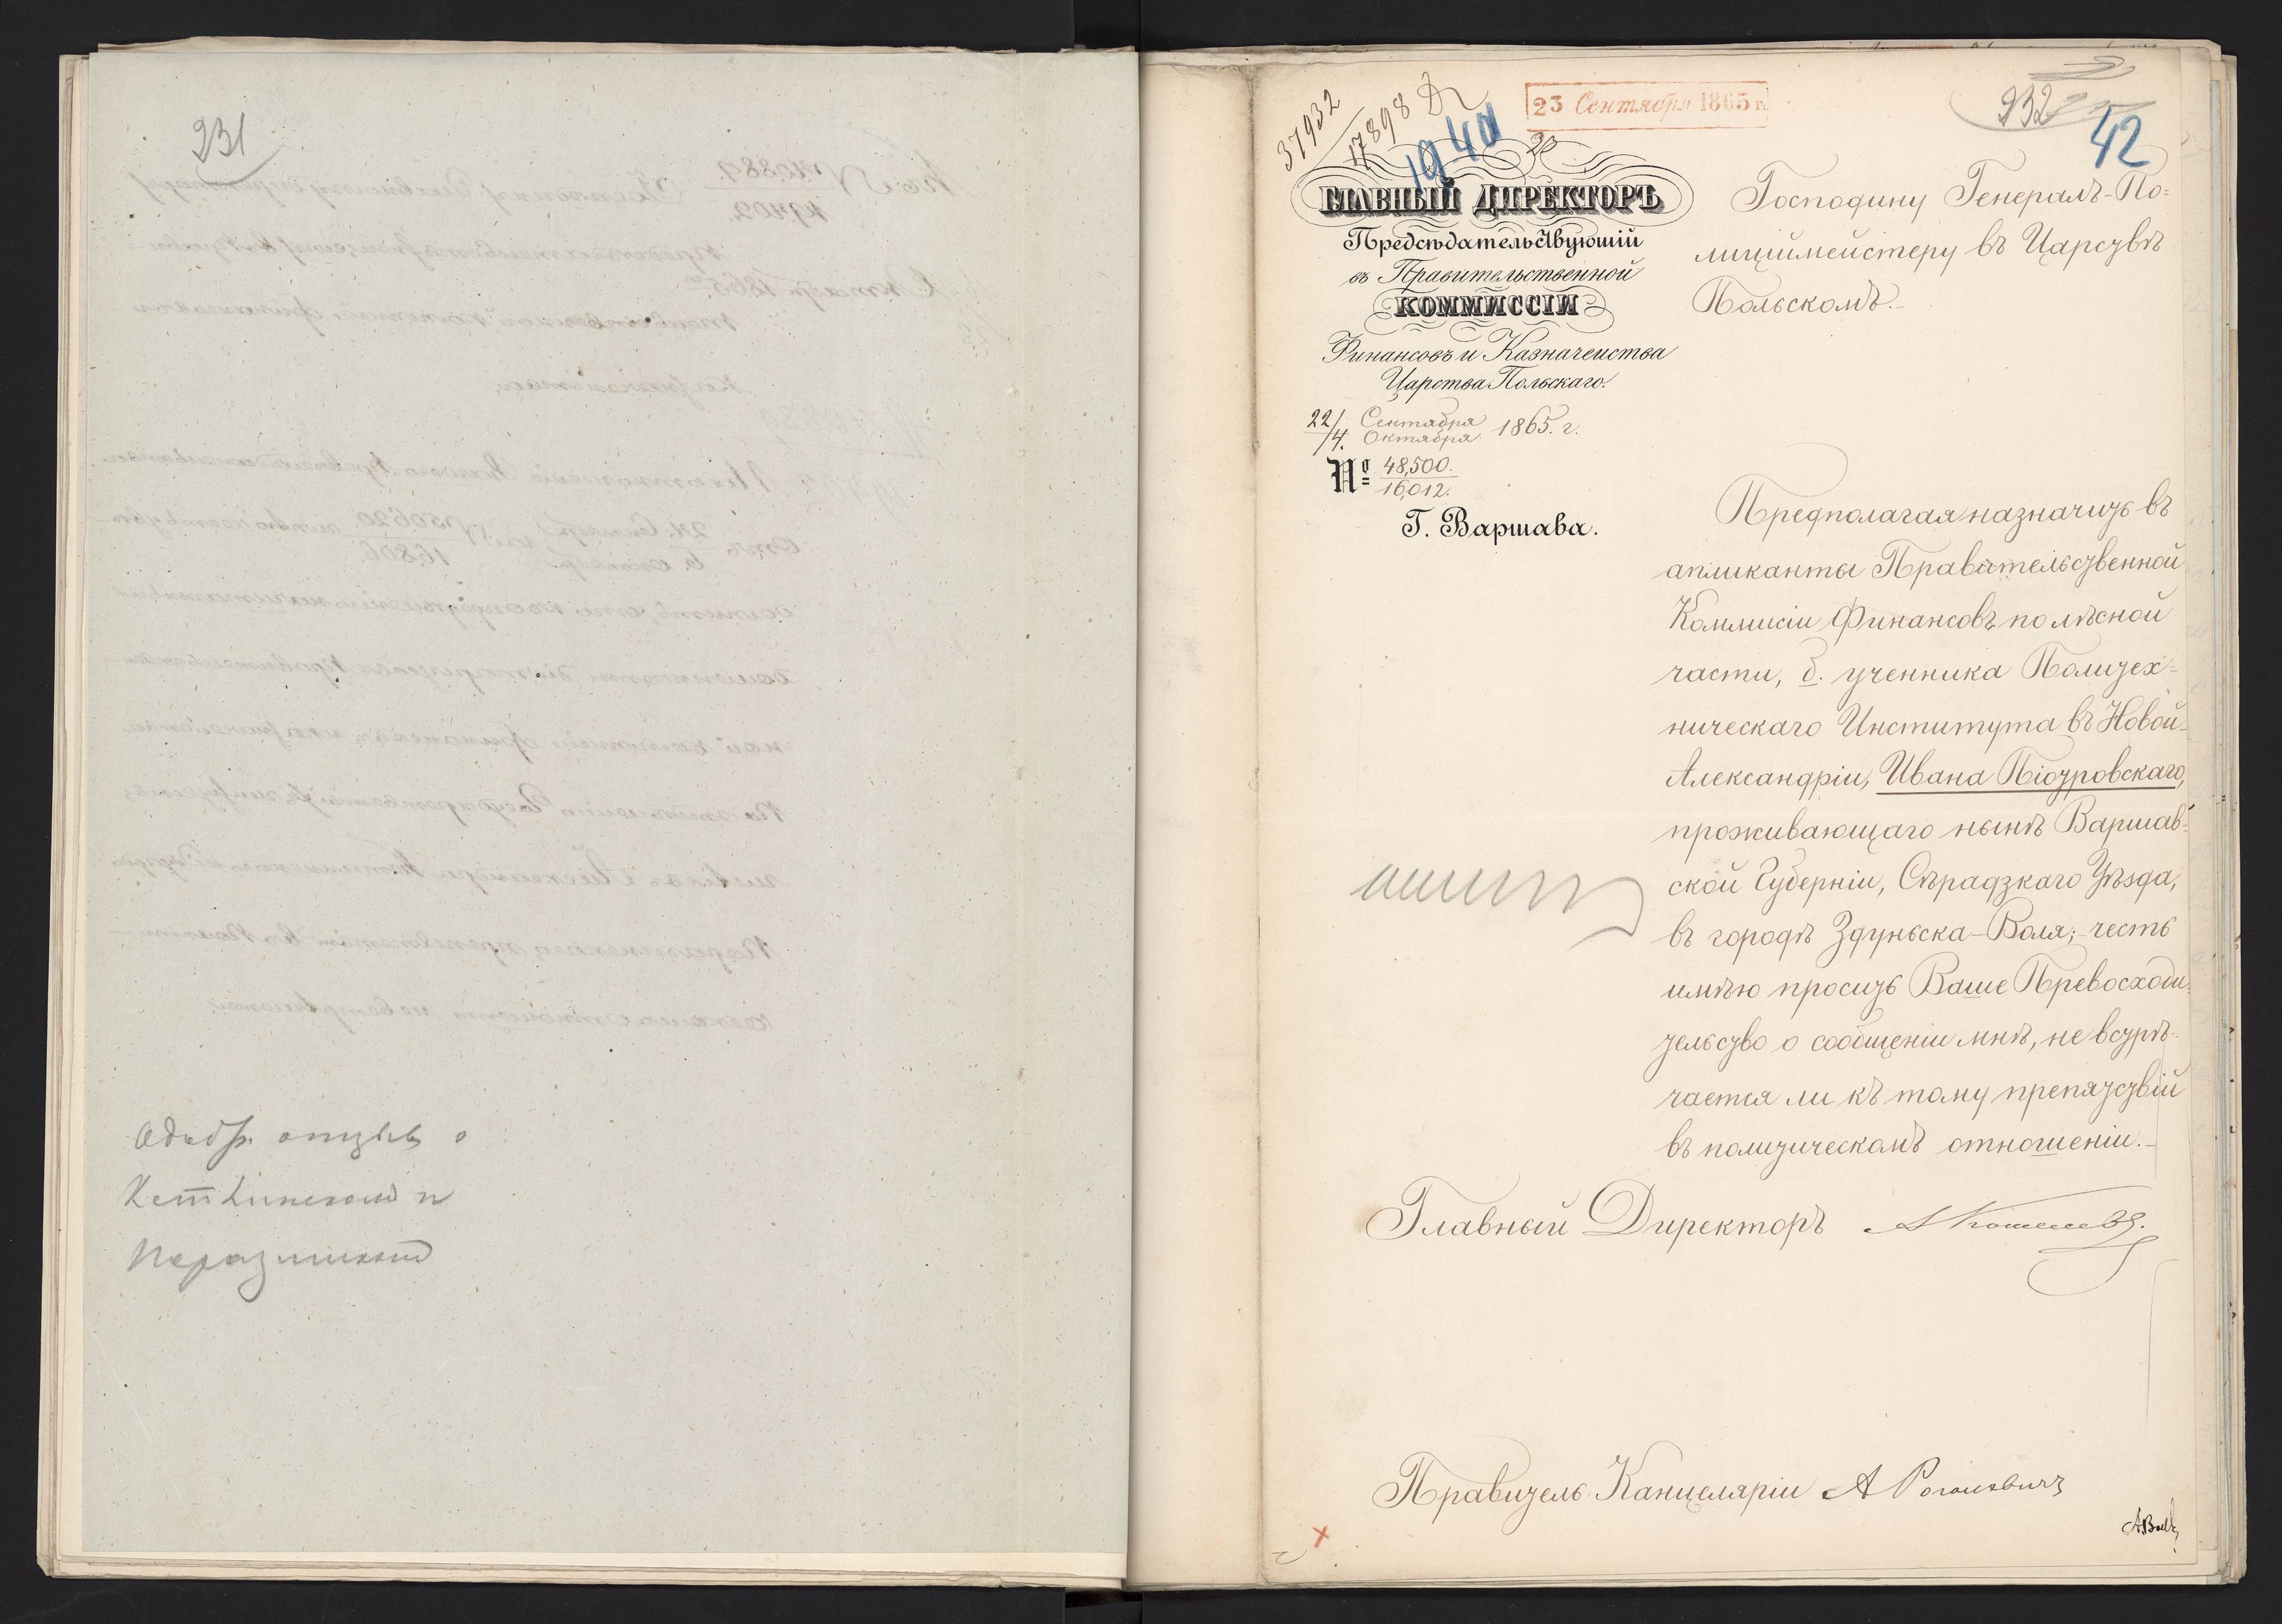 231
отзывъ о
37932
17898
1940
23 Сентября 1865 г.
232
42
ГЛАВНЫЙ ДИРЕКТОРЪ
Предсѣдательствующій
въ Правительственной
КОММИССІИ
Финансовъ и Казначейства
Царства Польскаго.
22/4. Сентября/Октября 1865. г.
№ 48,500./16,012.
Г. Варшава.
Господину Генералъ-По=
лиціймейстеру въ Царствѣ
Польскомъ.-
Предполагая назначить въ
апликанты Правительственной
Коммисіи Финансовъ по лѣсной
части, б. ученника Политех=
ническаго Института въ Новой-
Александріи, Ивана Піотровскаго,
проживающаго нынѣ Варшав=
ской Губерніи, Сѣрадзкаго Уѣзда,
въ городѣ Здуньска-Воля; честь
имѣю просить Ваше Превосходи-
тельство о сообщеніи мнѣ, не встрѣ-
чается ли къ тому препятствій
въ политическомъ отношеніи.-
Главный Директоръ А Кошелевъ.
Правитель Канцеляріи А